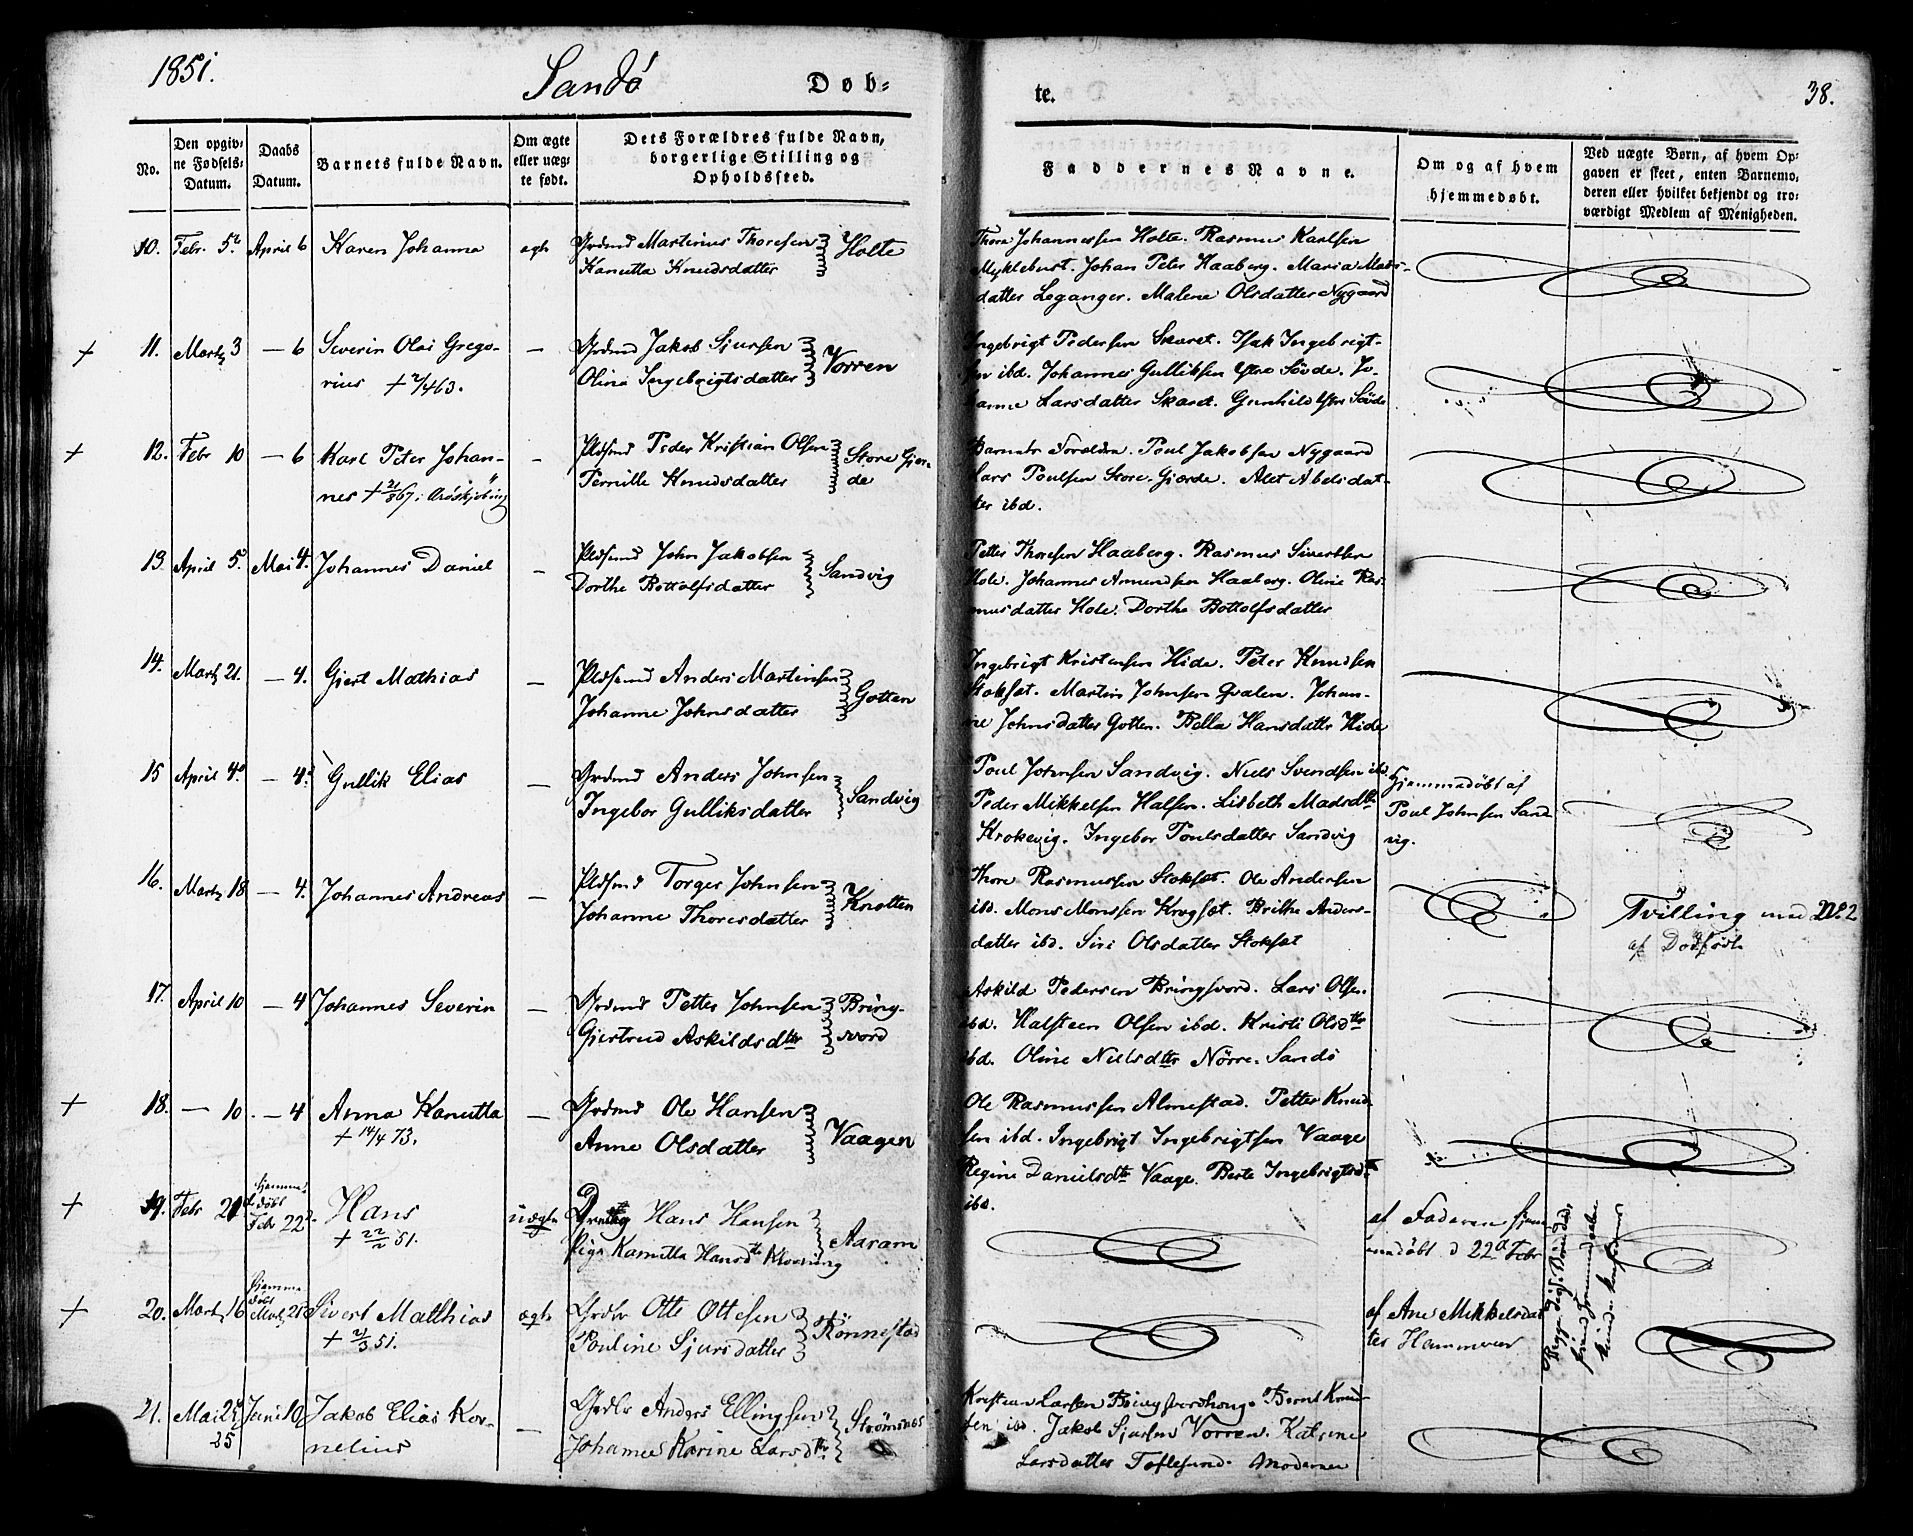 1851.
Sandø
Døb-
te.
38.
No.
Den opgiv-
ne Fødsels-
Datum.
Daabs
Datum.
Barnets fulde Navn.
Om ægte
eller uæg-
te født.
Dets Forældres fulde Navn,
borgerlige Stilling og
Opholdssted.
Faddernes Navne.
Om og af hvem
hjemmedøbt.
Ved uægte Børn, af hvem Op-
gaven er skeet, enten Barnemo-
deren eller hvilket bekjendt og tro-
værdigt Medlem af Menigheden.
10. Febr. 5 April 6 Karen Johanna Martinius Thoresen Holte
Kanutta Knudsdatter
Thore Johannessen Holte. Rasmus Karlsen
Myklebust. Johan Peter Haaberg. Maria Mads-
datter Leganger. Malene Olsdatter Nygaard
+ 11. Marts 3 — 6 Severin Olai Grego- — Jakob Sjursen Vorren
rius + 2/4 63. Oline Ingebrigtsdatter
Ingebrigt Pedersen Skaret. Isak Ingebrigt-
sen ibd. Johannes Gulliksen Ytre Søvde. Jo-
hanne Larsdatter Skaret. Gunhild Ytre Søvde
+ 12. Febr 10 — 6 Karl Peter Johan- — Peder Kristian Olsen Store Gjer-
nes + 21/8 67 i Pernille Knudsdatter de
Barnets Forældre. Poul Jakobsen Nygaard
Lars Poulsen Store-Gjerde. Alet Abelsdat-
ter ibd.
13. April 5. Mai 4. Johannes Daniel — John Jakobsen Sandvig
Dorthe Bottolfsdatter
Petter Thoresen Haaberg. Rasmus Sivertsen
Hole. Johannes Amundsen Haaberg. Oline Ras-
musdatter Hole. Dorthe Bottolfsdatter
14. Marts 21. — 4. Gjert Mathias — Anders Martinsen Gotten
Johanne Johnsdatter
Ingebrigt Kristensen Hide. Peter Knudsen
Stokset. Martin Johnsen Qvalen. Johan-
ne Johnsdatter Gotten. Bella Hansdattr Hide
15 April 4. — 4. Gullik Elias — Anders Johnsen Sandvig
Ingebor Gulliksdatter
Poul Johnsen Sandvig. Niels Svendsen ibd.
Peder Mikkelsen Halsen. Lisbeth Madsdtr
Krokevig. Ingebor Poulsdatter Sandvig
Hjemmedøbt af
Poul Johnsen Sand-
vig.
16. Marts 18 — 4. Johannes Andreas — Torger Johnsen Knotten
Johanne Thoresdatter
Thore Rasmussen Stokset. Ole Andersen
ibd. Mons Monssen Krogset. Brithe Anders-
datter ibd. Siri Olsdatter Stokset
Tvilling med No. 2
af Dødfødte
17. April 10 — 4 Johannes Severin — Petter Johnsen Bring-
Gjertrud Askildsdtr svord
Askild Pedersen Bringsvord. Lars Olsen
ibd. Halsteen Olsen ibd. Kristi Olsdtr
ibd. Oline Nielsdtr Nørre-Sandø
+ 18. — 10. — 4 Anna Kanutta — Ole Hansen Vaagen
+ 14/4 73. Anne Olsdatter
Ole Rasmussen Almestad. Petter Knud-
sen ibd. Ingebrigt Ingebrigtsen Vaage
Regine Danielsdtr Vaage. Berte Ingebrigtsd.
ibd.
+ 19. Febr 21 hjemme-
døbt
Febr 22 Hans uægte Hans Hansen Aaram
+ 22/2 51. Pige Kanutta Hansdtr
af Faderen hjem-
medøbt d 22 Febr
+ 20. Marts 16 hjemme
døbt
Marts 21 Sivert Matthias ægte Otte Ottesen Rønnestad
+ 21/3 51. Pouline Sjursdatter
af Ane Mikkelsdat-
ter Hammeren
21. Mai 25 Juni 10 Jakob Elias Kor- — Anders Ellingsen Strømsnes
25 nelius Johanne Karine Larsdtr
Kristian Larsen Bringsvordhoug. Bernt Knud-
sen ibd. Jakob Sjursen Vorren. Katrine
Larsdatter Toftesund. Moderen